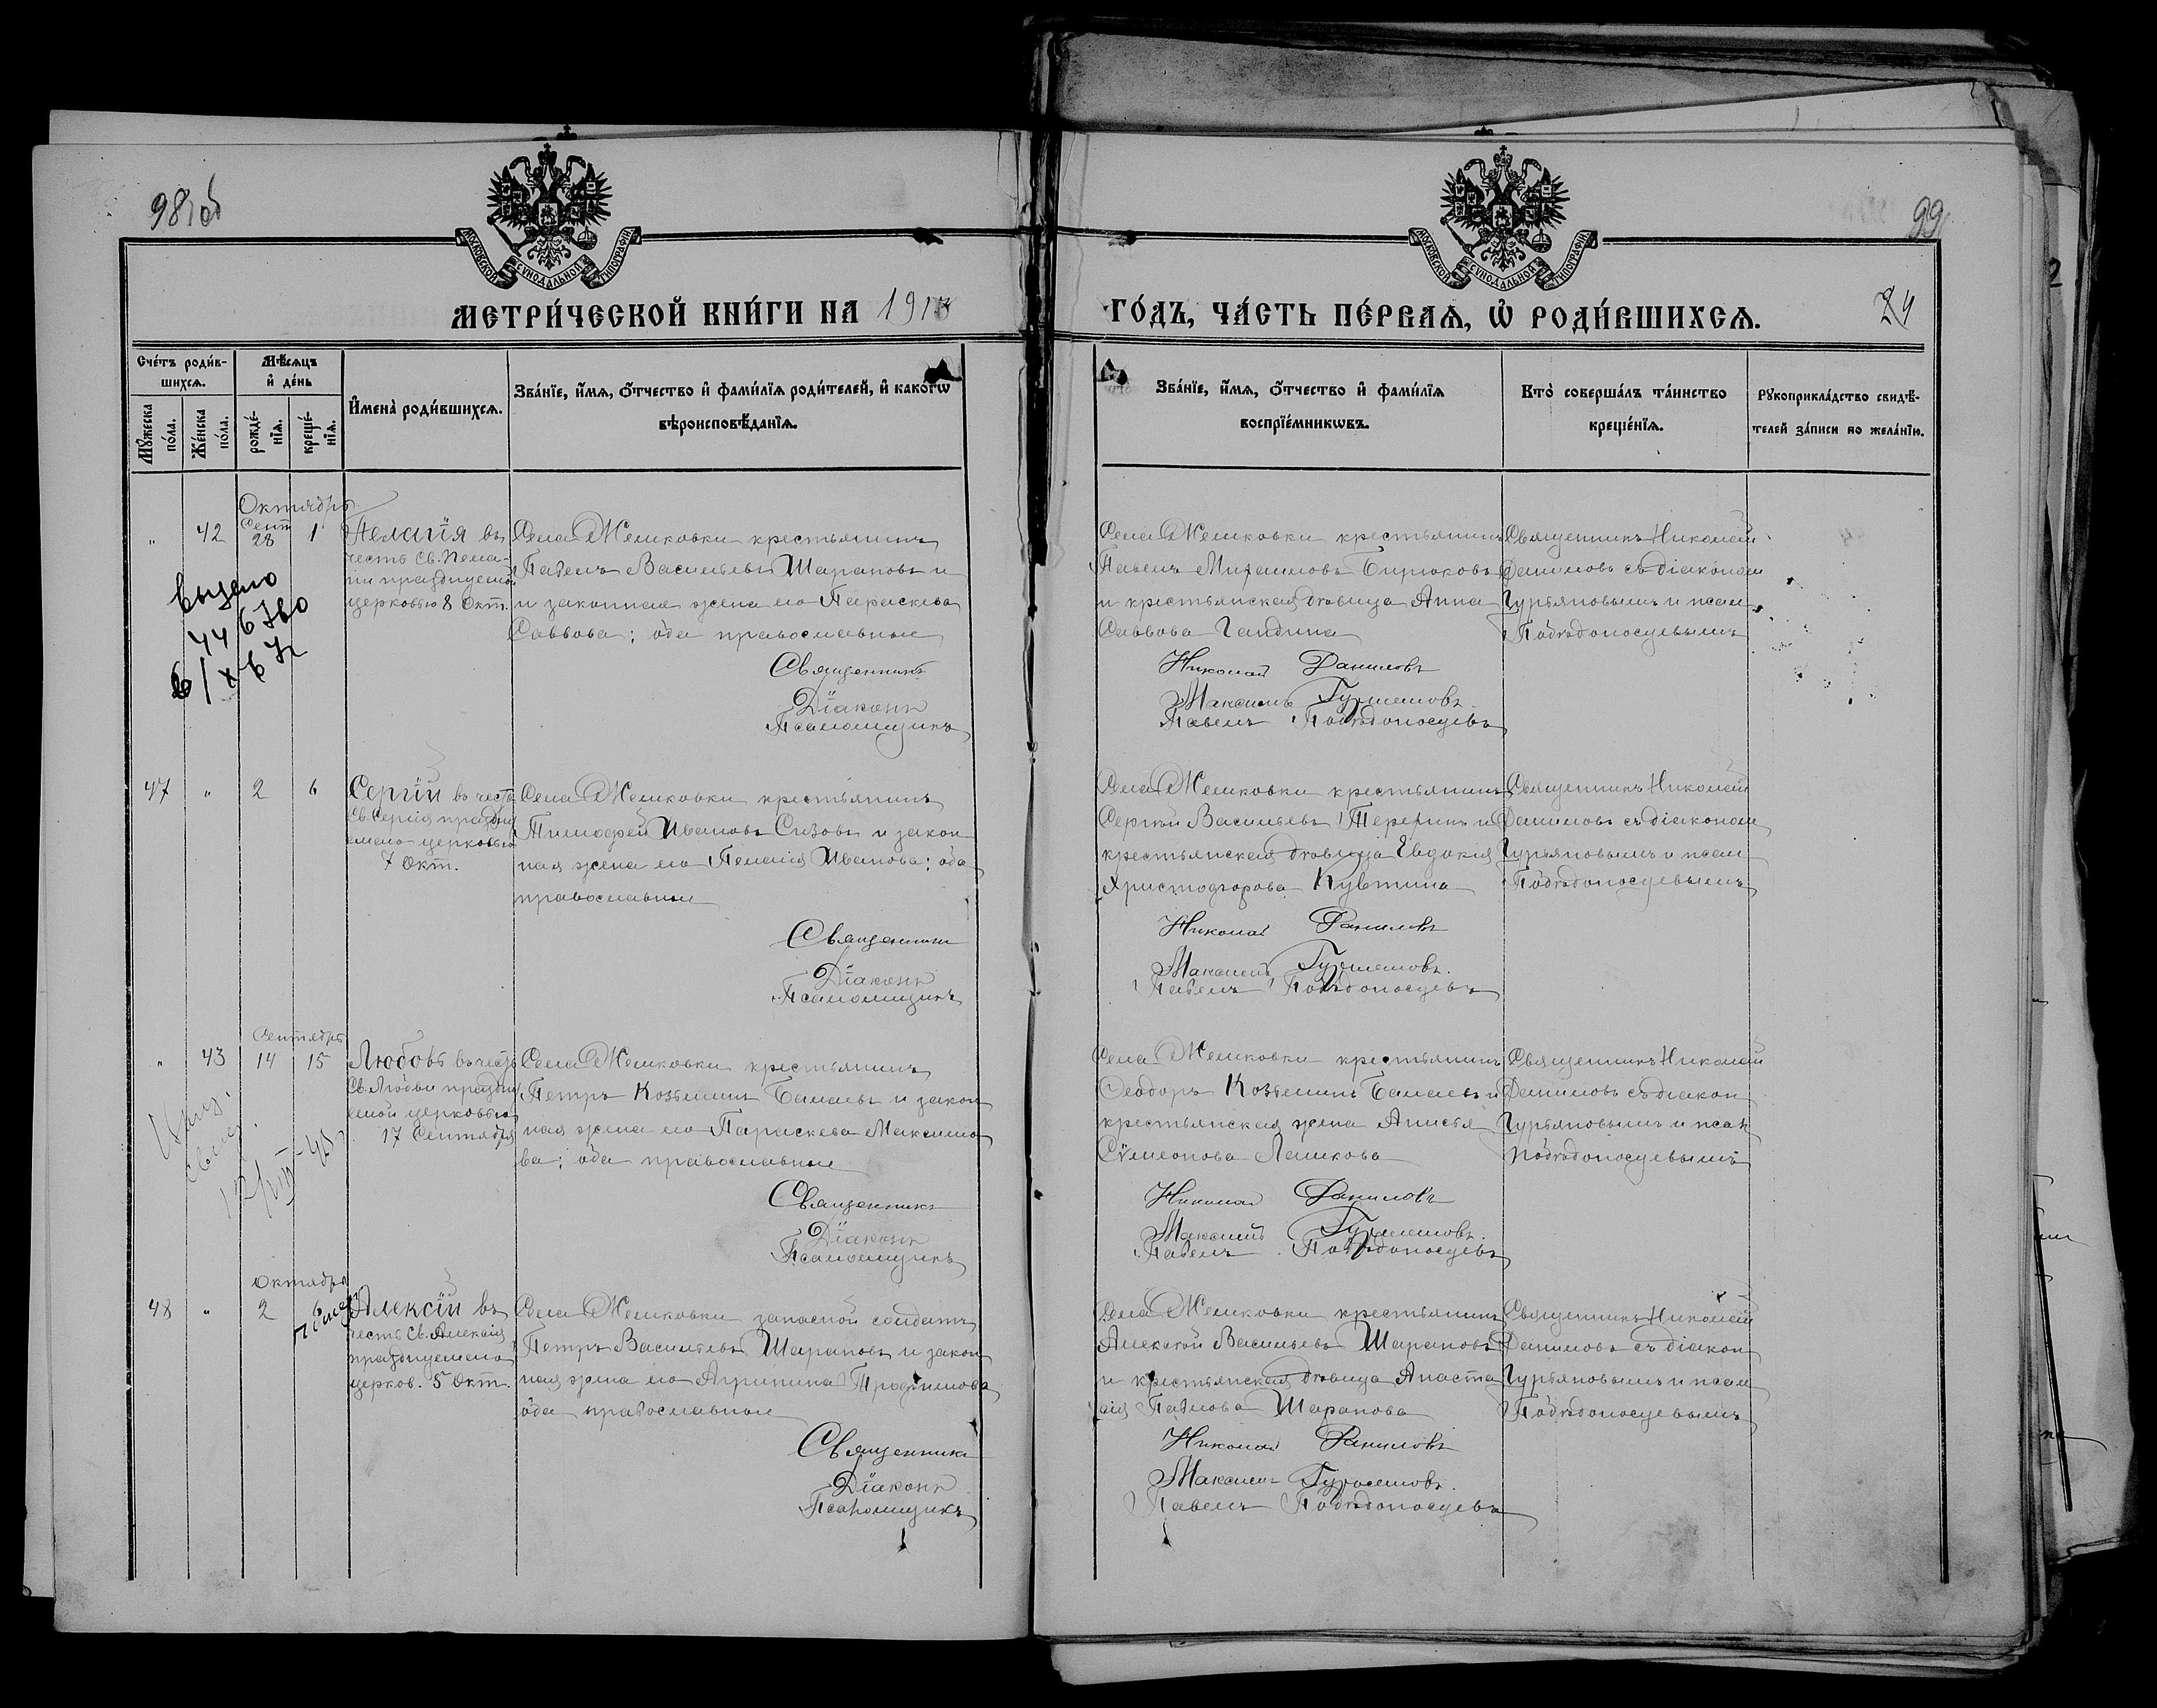 98 об
99
МОСКОВСКОЙ СѴНОДАЛЬНОЙ ТИПОГРАФІИ
МОСКОВСКОЙ СѴНОДАЛЬНОЙ ТИПОГРАФІИ
МЕТРИ́ЧЕСКОЙ КНИ́ГИ НА 1913
ГО́ДЪ, ЧА́СТЬ ПЕ́РВАѦ, Ѡ҆ РОДИ́ВШИХСѦ.
24
Сче́тъ роди́в-
шихсѧ.
Мѣ́сѧцъ
и҆ де́нь
Мꙋ́жеска
по́ла.
Же́нска
по́ла.
рожде́-
нїѧ.
креще́-
нїѧ.
И҆мена̀ роди́вшихсѧ.
Зва́нїе, и҆́мѧ, ѻ҆́тчество и҆ фами́лїѧ роди́телей, и҆ како́гѡ
вѣроисповѣ́данїѧ.
Зва́нїе, и҆́мѧ, ѻ҆́тчество и҆ фами́лїѧ
воспрїе́мникѡвъ.
Кто̀ соверша́лъ та́инство
креще́нїѧ.
Рꙋкоприкла́дство свидѣ́-
телей за́писи по жела́нїю.
Октябрь
" 42 Сент 28 1
Пелагія въ
честь Св. Пела-
гіи празднуемой
церковью 8 Окт.
Села Мешковки крестьянинъ
Павелъ Васильевъ Шараповъ и
и законная жена его Параскева
Саввова; оба православные
Священникъ
Діаконъ
Псаломщикъ
Села Мешковки крестьянинъ
Павелъ Бирюковъ
и крестьянская дѣвица Анна
Саввова
Николай Даниловъ
Максимъ Гурьяновъ
Павелъ Побѣдоносцевъ
Священникъ Николай
Даниловъ съ діакономъ
Гурьяновымъ и псал.
Побѣдоносцевымъ
выдано
47 " 2 6
Сергій въ честь
Св. Сергія праздну
емаго церковью
7 Окт.
Села Мешковки крестьянинъ
Тимофей Ивановъ Сизовъ и закон
ная жена его Пелагія Иванова; оба
православные
Священникъ
Діаконъ
Псаломщикъ
Села Мешковки крестьянинъ
Сергѣй Васильевъ и
крестьянская дѣвица Евдокія
Христофорова
Николай Даниловъ
Максимъ Гурьяновъ.
Павелъ Побѣдоносцевъ
Священникъ Николай
Даниловъ съ діакономъ
Гурьяновымъ и псал
Побѣдоносцевымъ
Сентябрь
" 43 14 15
Любовь въ честь
Св. Любви праздну
емой церковью
17 Сентября
Села Мешковки крестьянинъ
Петръ Козьминъ и закон
ная жена его Параскева Максимо
ва; оба православные
Священникъ
Діаконъ
Псаломщикъ
Села Мешковки крестьянинъ
Ѳеодоръ Козьминъ и
крестьянская жена Анисья
Сѵмеонова
Николай Даниловъ
Максимъ Гурьяновъ.
Павелъ Побѣдоносцевъ
Священникъ Николай
Даниловъ съ діакон
Гурьяновымъ и псал
Побѣдоносцевымъ
Октябрь
48 " 2
Алексій въ
честь Св. Алексія
празднуемаго
церков. 5 Окт.
Села Мешковки запасной солдатъ
Петръ Васильевъ Шараповъ и закон
ная жена его Агрипина Трофимова
оба православные
Священникъ
Діаконъ
Псаломщикъ
Села Мешковки крестьянинъ
Алексѣй Васильевъ Шараповъ
и крестьянская дѣвица Анаста
сія Павлова Шарапова
Николай Даниловъ
Максимъ Гурьяновъ.
Павелъ Побѣдоносцевъ
Священникъ Николай
Даниловъ съ діакон
Гурьяновымъ и псал
Побѣдоносцевымъ